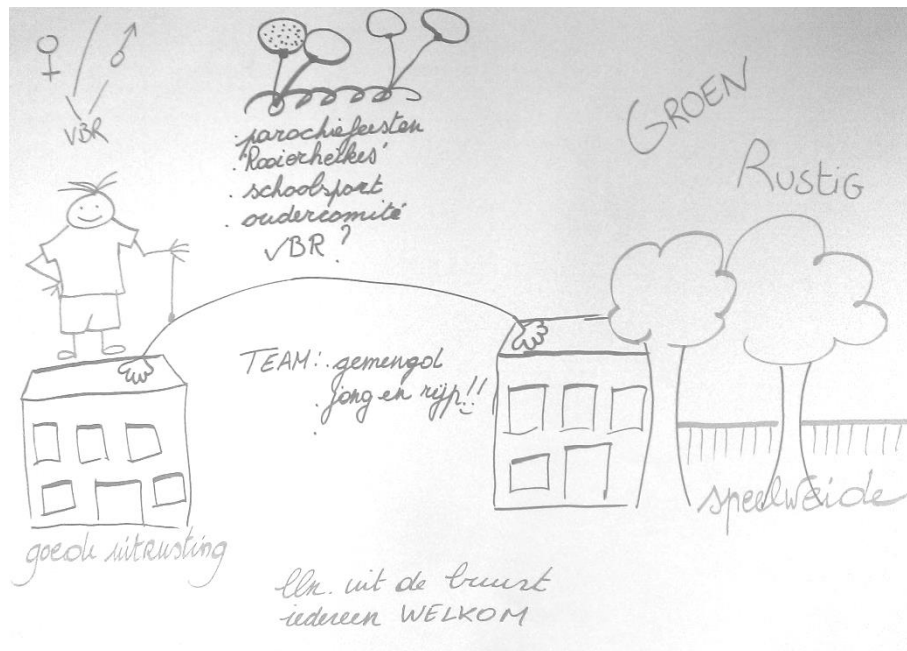 ♀ / ♂
VBR
. parochiefeesten
. 'Rooierheikes'
. schoolsport
. oudercomité
VBR ?
GROEN
RUSTIG
TEAM: . gemengd
. jong en rijp!!
.
speelweide
goede uitrusting
lln. uit de buurt
iedereen WELKOM